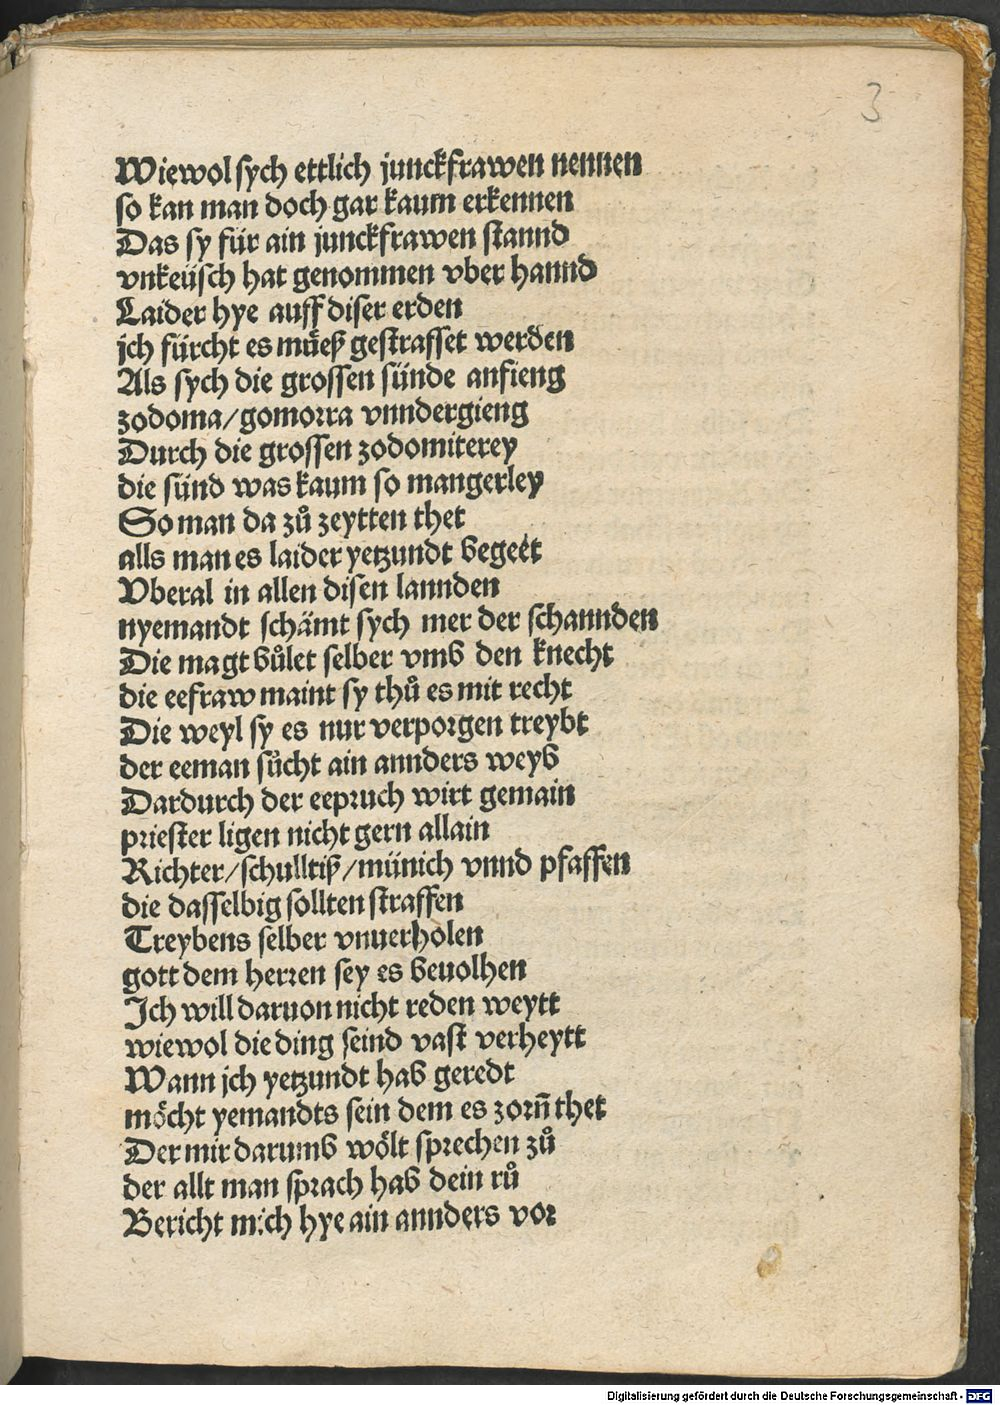 3
Wiewol sych ettlich junckfrawen nennen
so kan man doch gar kaum erkennen
Das sy für ain junckfrawen stannd
vnkeüsch hat genommen vber hannd
Laider hye auff diser erden
jch fürcht es muͤeß gestraffet werden
Als sych die grossen sünde anfieng
zodoma/gomorra vnndergieng
Durch die grossen zodomiterey
die sünd was kaum so mangerley
So man da zuͦ zeytten thet
alls man es laider yetzundt begeet
Vberal in allen disen lannden
nyemandt schaͤmt sych mer der schannden
Die magt buͦlet selber vmb den knecht
die eefraw maint sy thuͦ es mit recht
Die weyl sy es nur verporgen treybt
der eeman suͦcht ain annders weyb
Dardurch der eepruch wirt gemain
priester ligen nicht gern allain
Richter/schulltiß/münich vnnd pfaffen
die dasselbig sollten straffen
Treybens selber vnuerholen
gott dem herren sey es beuolhen
Jch will daruon nicht reden weytt
wiewol die ding seind vast verheytt
Wann jch yetzundt hab geredt
moͤcht yemandts sein dem es zorn̄ thet
Der mir darumb woͤlt sprechen zuͦ
der allt man sprach hab dein ruͦ
Bericht mich hye ain annders vor
Digitalisierung gefördert durch die Deutsche Forschungsgemeinschaft - DFG